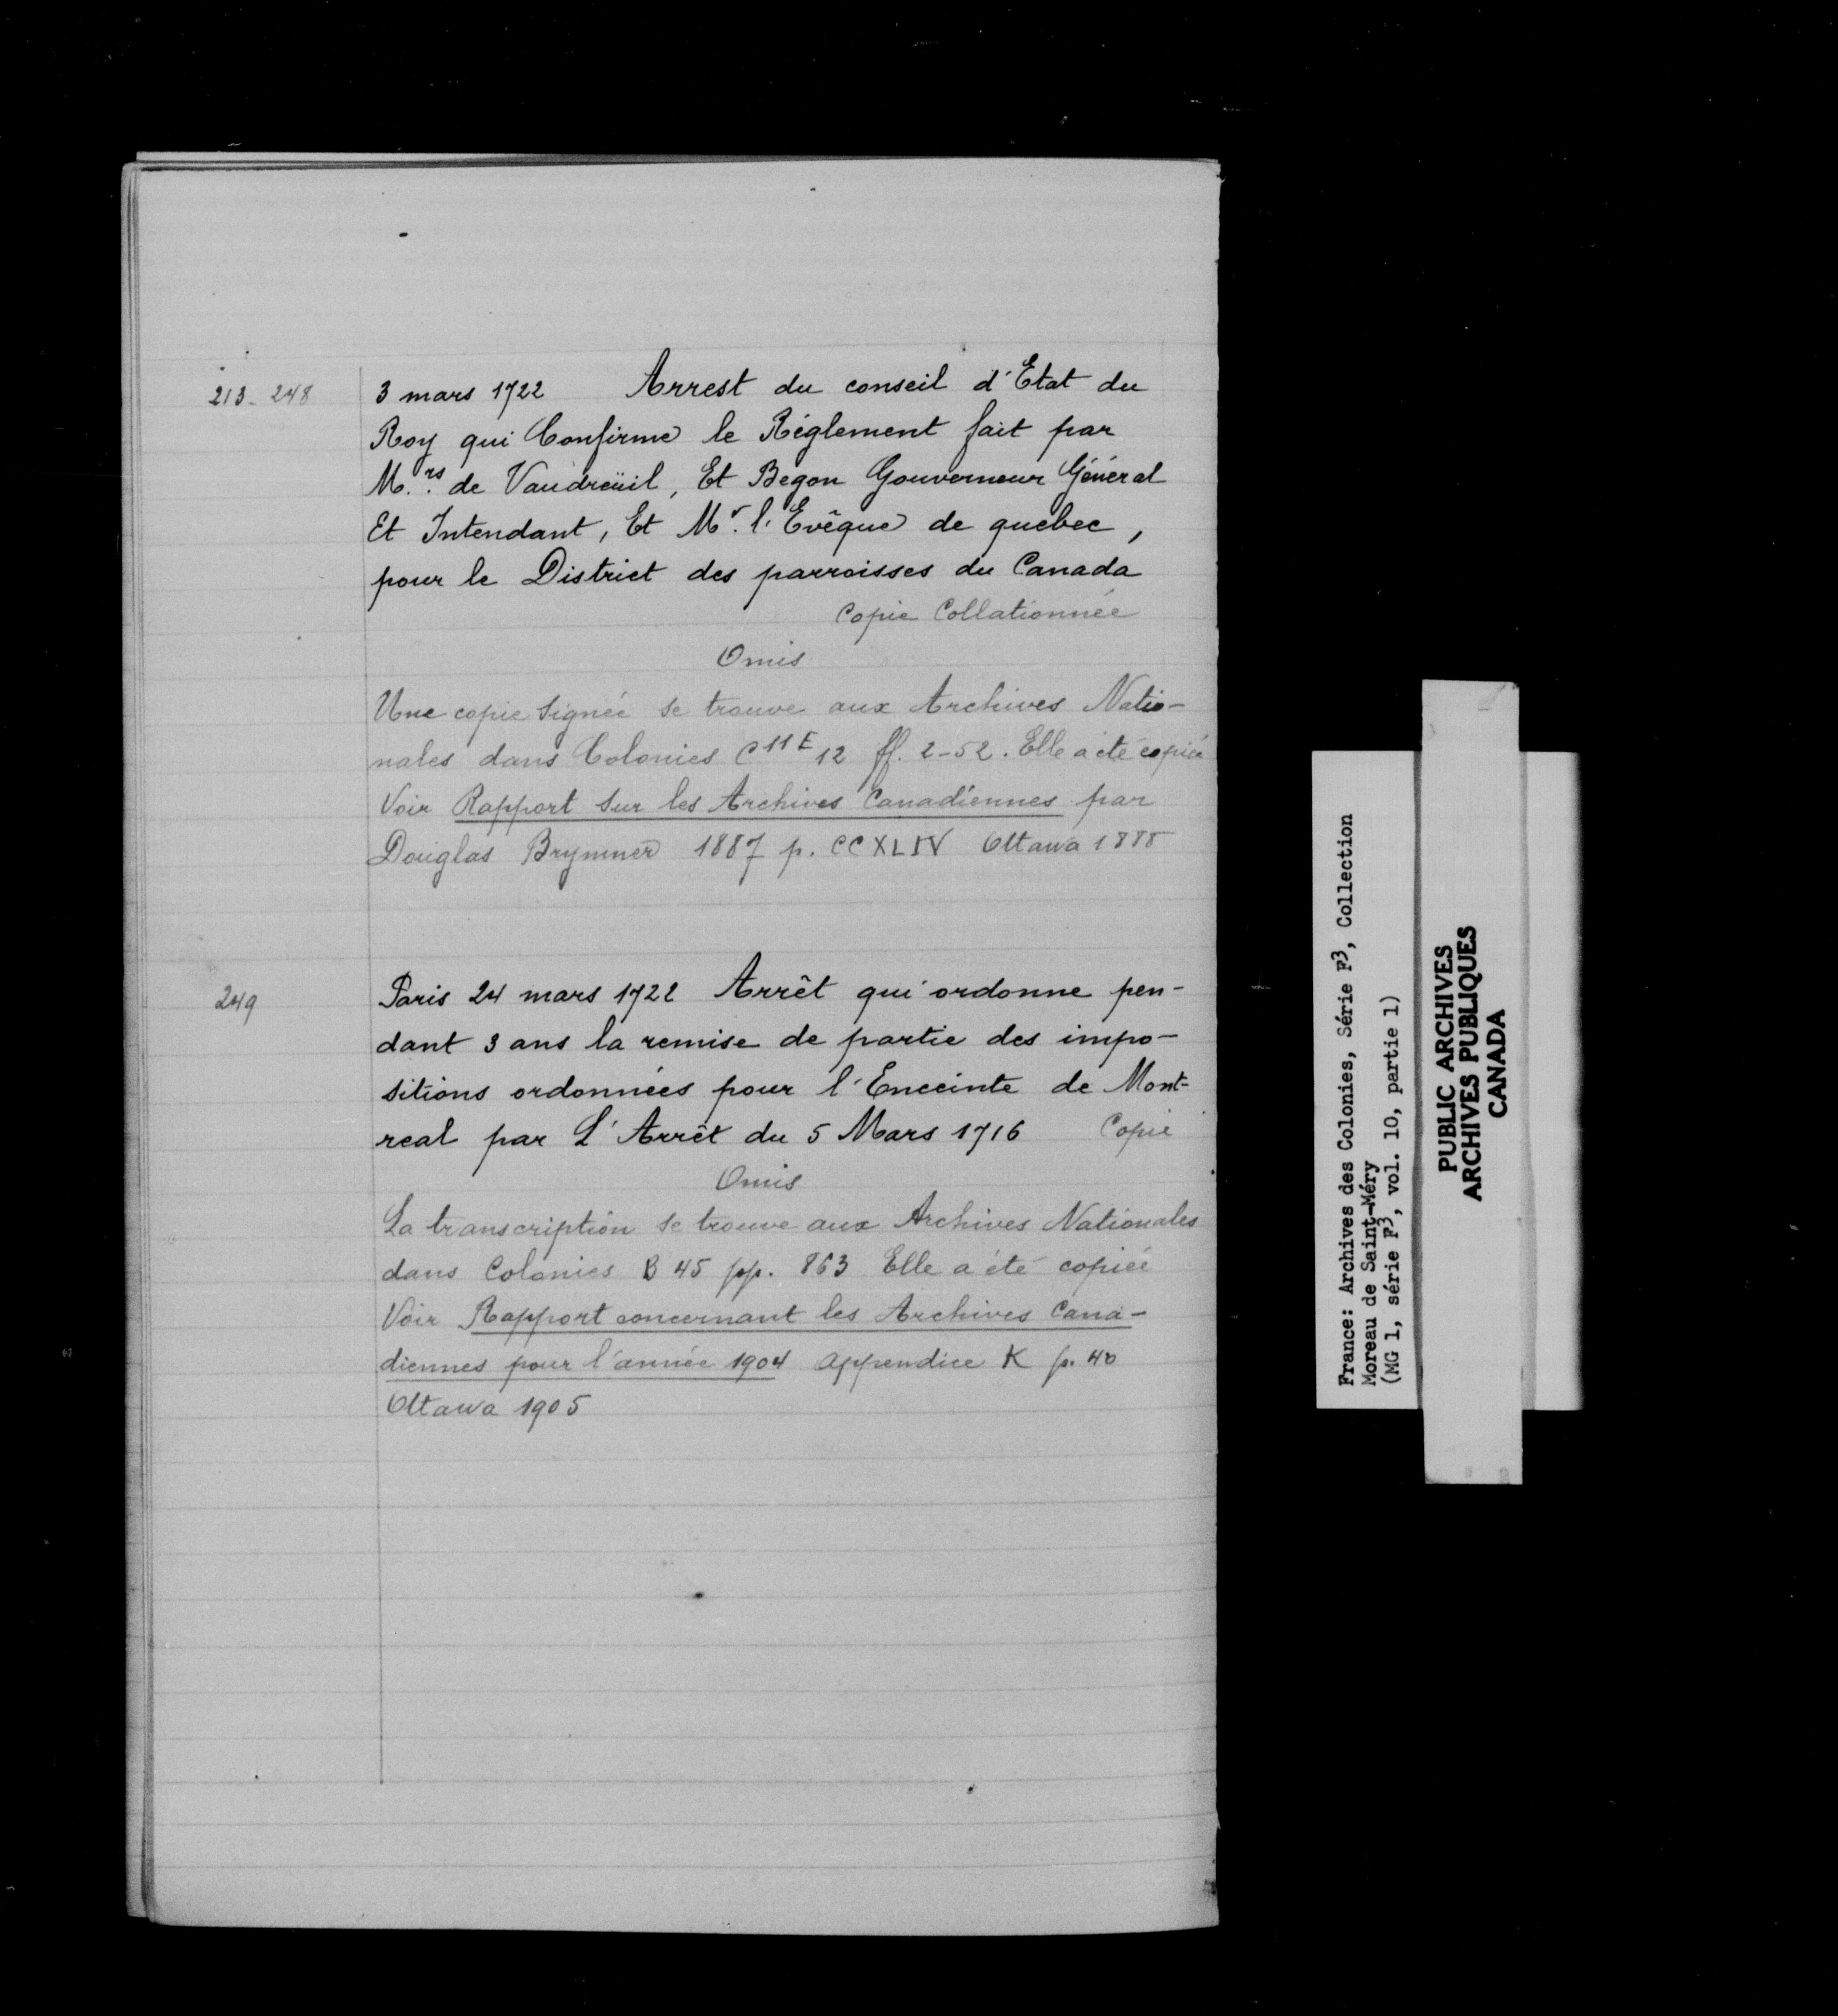 213-248
3 mars 1722 Arrest du conseil d'Etat du
Roy qui Confirme le Réglement fait par
M.rs de Vaudreüil, Et Begon Gouverneur Général
Et Intendant, Et Mr. l'Evêque de quebec,
pour le District des parroisses du Canada
Copie Collationnée
Omis
Une copie signée se trouve aux Archives Natio-
nales dans Colonies C11E 12 ff. 2-52. Elle a été copiée
Voir Rapport sur les Archives Canadiennes par
Douglas Brymner 1887 p. CCXLIV Ottawa 1888
249
Paris 24 mars 1722 Arrêt qui ordonne pen-
dant 3 ans la remise de partie des impo-
sitions ordonnées pour l'Enceinte de Mont-
real par L'Arrêt du 5 Mars 1716 Copie
Omis
La transcription se trouve aux Archives Nationales
dans Colonies B 45 pp. 863 Elle a été copiée
Voir Rapport concernant les Archives Cana-
diennes pour l'année 1904 appendice K p. 40
Ottawa 1905
France: Archives des Colonies, Série F3, Collection
Moreau de Saint-Méry
(MG 1, série F3, vol. 10, partie 1)
PUBLIC ARCHIVES
ARCHIVES PUBLIQUES
CANADA